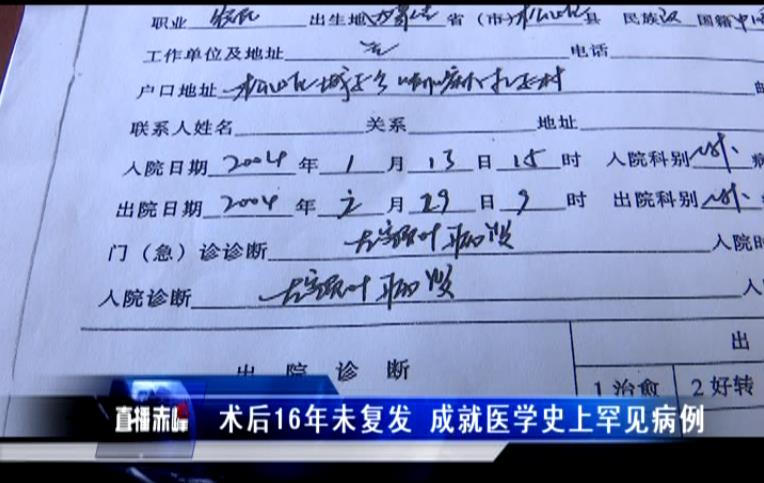 职业 农民 出生地 内蒙古 省（市）松山区 县 民族 汉 国籍 中
工作单位及地址 电话
户口地址 松山区城子乡 村
联系人姓名 关系 地址
入院日期 2004 年 1 月 13 日 15 时 入院科别 外、
出院日期 2004 年 元 月 29 日 9 时 出院科别 外、
门（急）诊诊断 左额叶病变 入院时
入院诊断 左额叶病变 入
出院诊断 出
1 治愈 2 好转
直播赤峰 术后16年未复发 成就医学史上罕见病例